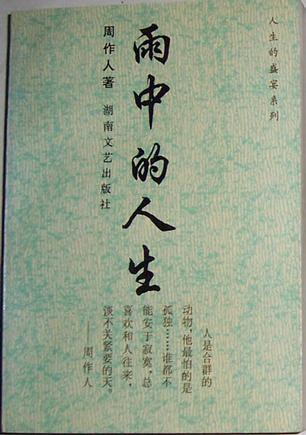 人生的盛宴系列
雨中的人生
周作人著
湖南文艺出版社
人是合群的
动物,他最怕的是
孤独……谁都不
能安于寂寞,总
喜欢和人往来,
谈不关紧要的天。
——周作人